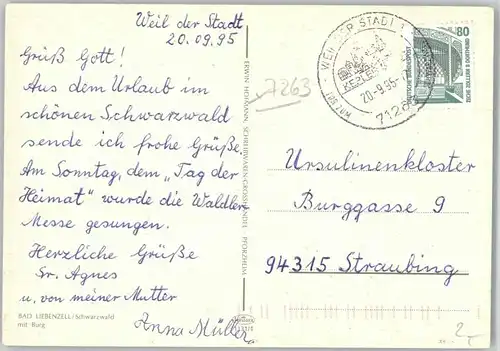 Weil der Stadt
20.09.95
Grüß Gott!
Aus dem Urlaub im
schönen Schwarzwald
sende ich frohe Grüße.
Am Sonntag, dem „Tag der
Heimat" wurde die Waldler-
Messe gesungen.
Herzliche Grüße
Sr. Agnes
u. von meiner Mutter
Anna Müller
BAD LIEBENZELL/Schwarzwald
mit Burg
ERWIN HOHMANN, SCHREIBWAREN-GROSSHANDEL PFORZHEIM
7263
WEIL DER STADT 1
KEPLER
20.-9.95
DEUTSCHE BUNDESPOST
80
Ursulinenkloster
Burggasse 9
94315 Straubing
2